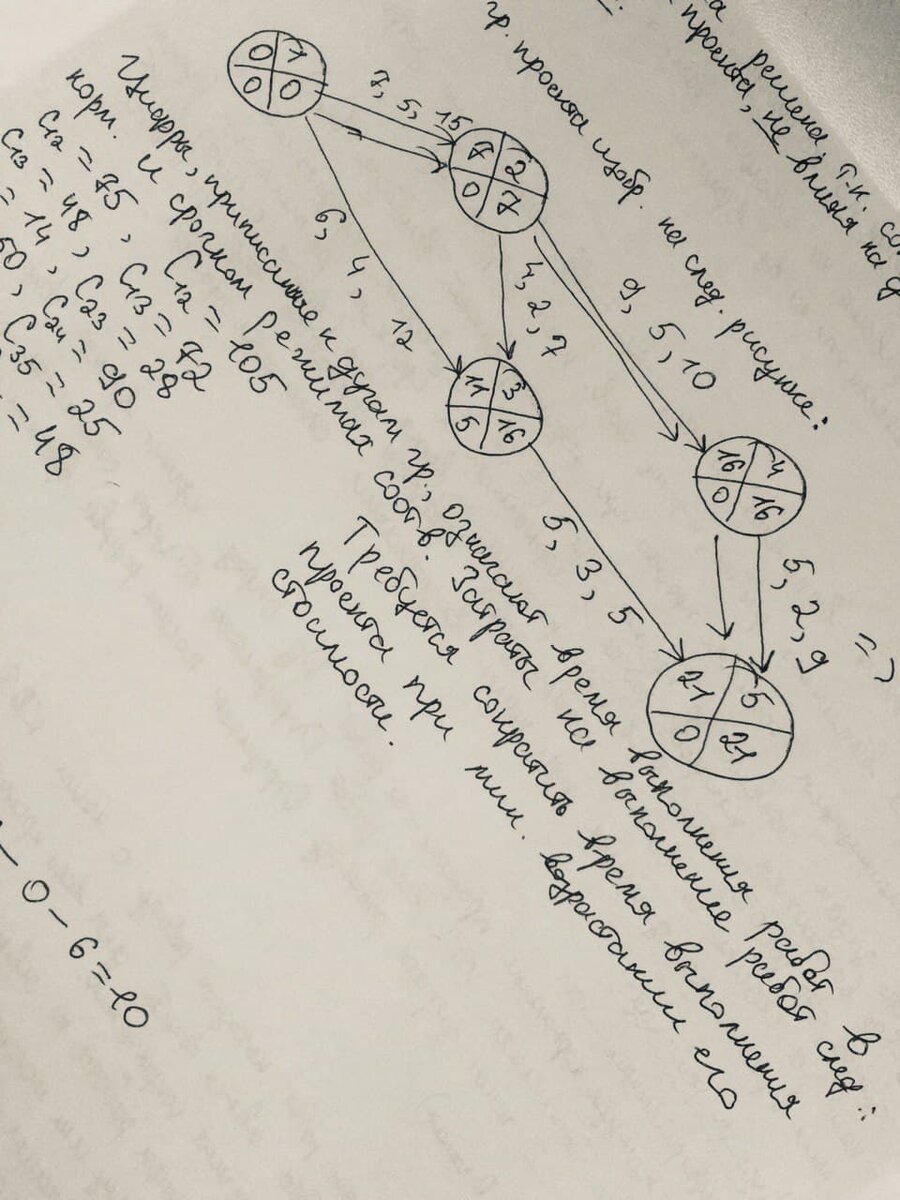 решена, т.к. со
проекта, не влияя на
гр. проекта изобр. на след. рисунке:
0 1 0 0
7, 5, 15
7 2 0 7
6, 4, 12
4, 2, 7
9, 5, 10
11 3 5 16
16 4 0 16
5, 3, 5
5, 2, 9
=>
21 5 0 21
Цифры, приписанные к дугам гр., означают время выполнения работ в
норм. и срочном режимах соотв. Затраты на выполнение работ след.:
C12 = 75, C12 = 105
C13 = 48, C13 = 72
= 14, C23 = 28
50, C24 = 90
C35 = 25
= 48
Требуется сократить время выполнения
проекта при мин. возрастании его
стоимости.
- 0 - 6 = 10